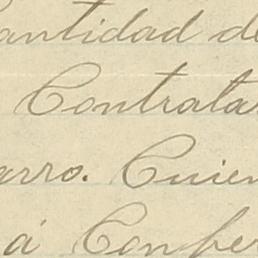 antidad de
Contratar
arro. Cuien
á Confer